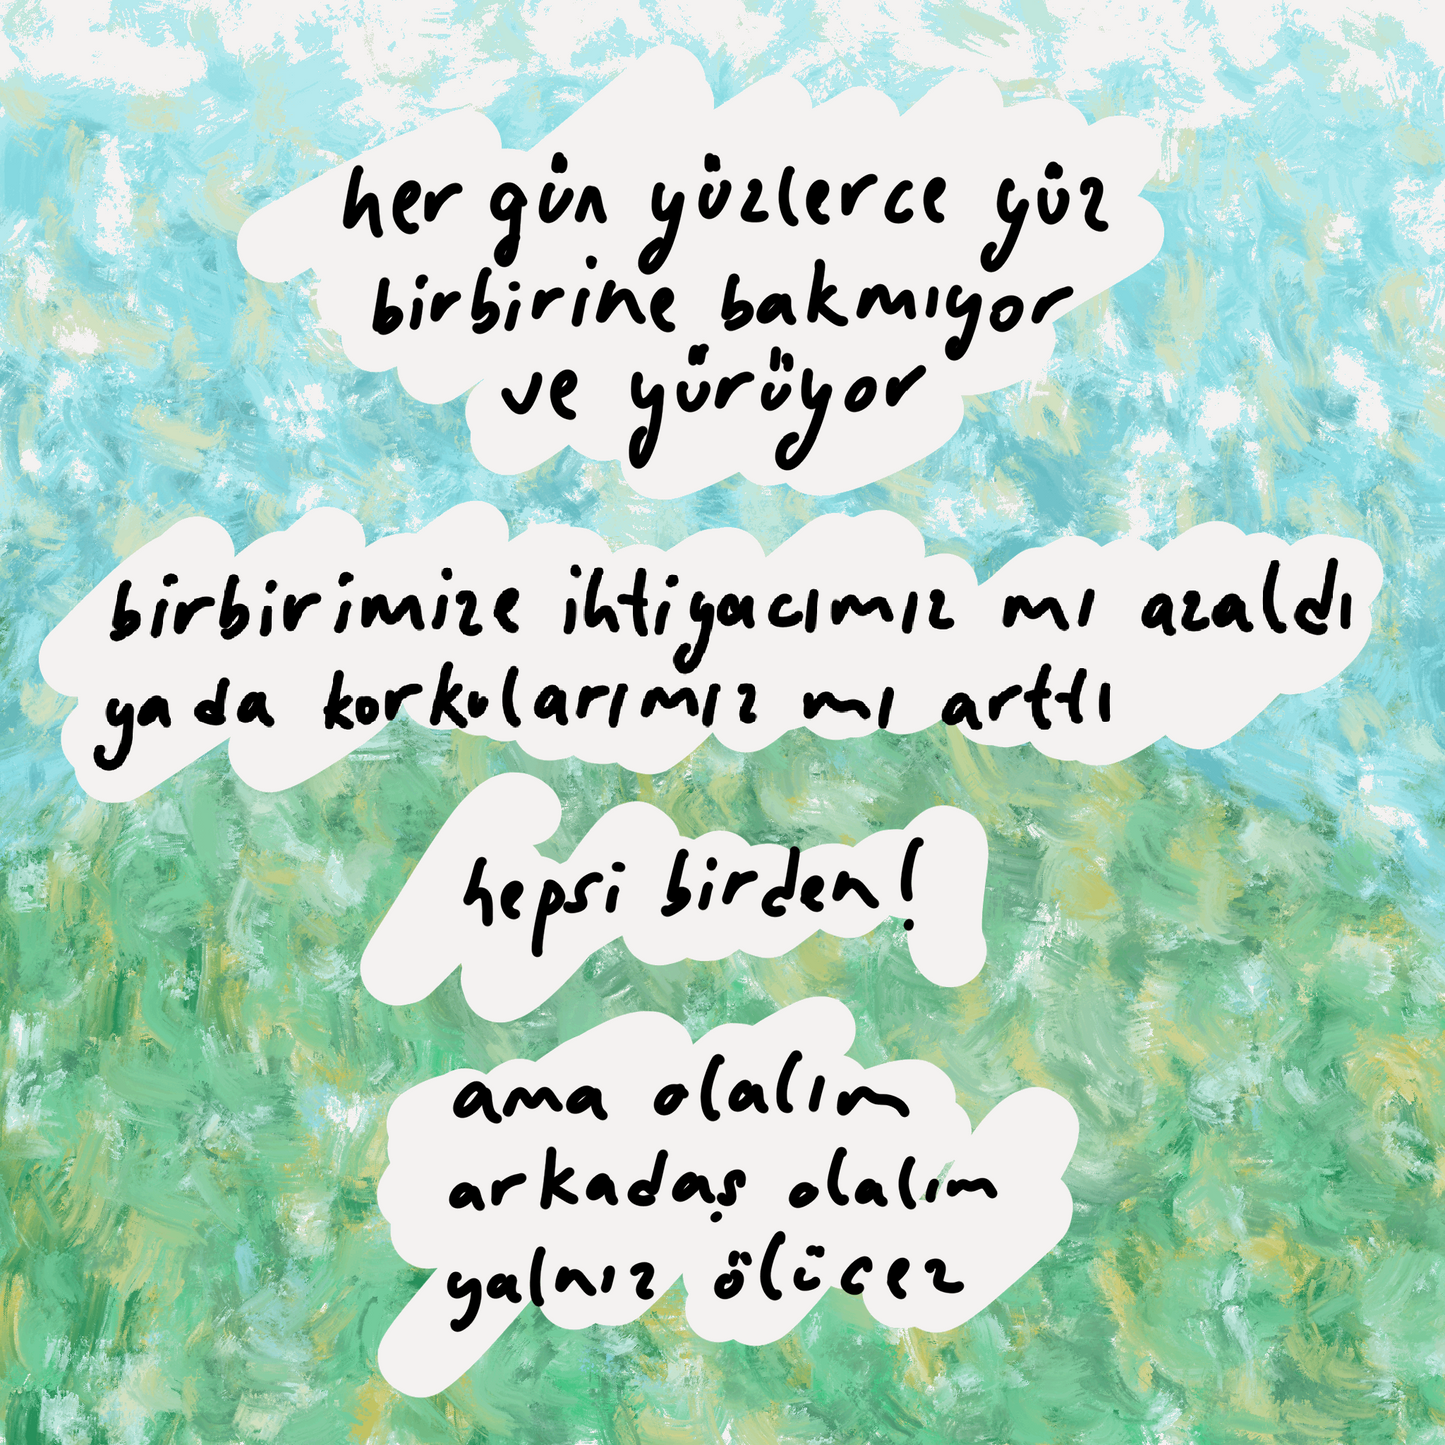 her gün yüzlerce yüz
birbirine bakmıyor
ve yürüyor
birbirimize ihtiyacımız mı azaldı
ya da korkularımız mı arttı
hepsi birden!
ama olalım
arkadaş olalım
yalnız ölücez